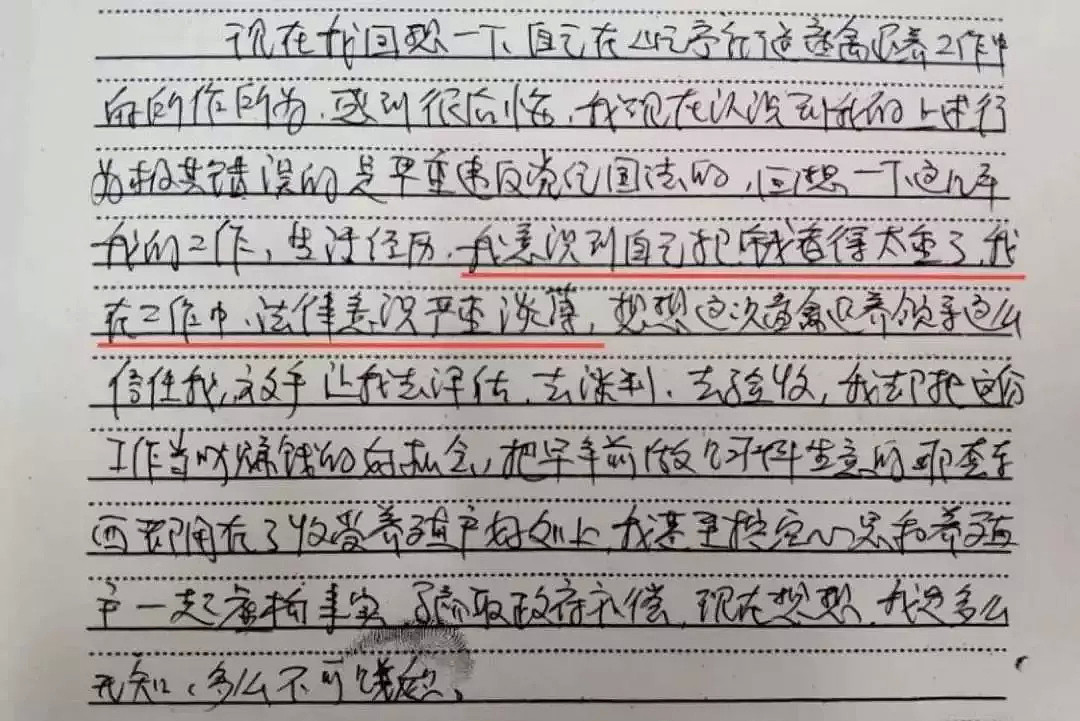 现在我回想一下自己在从事行道畜禽退养工作中
的所作所为,感到很后悔,我现在认识到我的上述行
为极其错误的是严重违反党纪国法的,回想一下这几年
我的工作,生活经历,我意识到自己把钱看得太重了,我
在工作中,法律意识严重淡薄,想想这次畜禽退养领导这么
信任我,放手让我去评估、去谈判、去验收,我却把这份
工作当成赚钱的好机会,把早年前做饲料生意的那套东
西都用在了收受养殖户好处上,我甚至挖空心思和养殖
户一起虚构事实 骗取政府补偿,现在想想,我是多么
无知、多么不可饶恕。